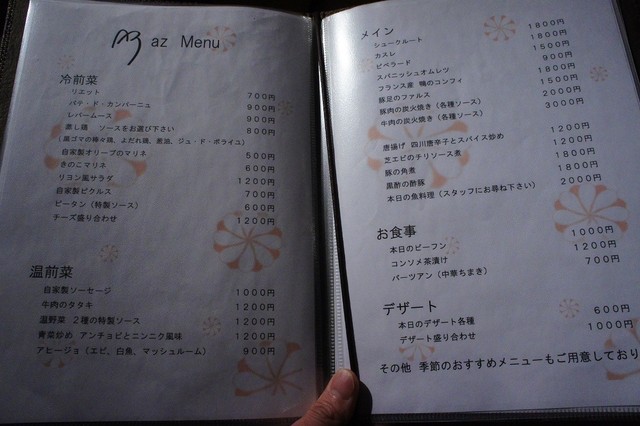 az Menu
冷前菜
リエット 700円
パテ・ド・カンパーニュ 900円
レバームース 900円
蒸し鶏 ソースをお選び下さい 800円
(黒ゴマの棒々鶏、よだれ鶏、葱油、ジュ・ド・ボライユ)
自家製オリーブのマリネ 500円
きのこマリネ 600円
リヨン風サラダ 1200円
自家製ピクルス 700円
ピータン(特製ソース) 600円
チーズ盛り合わせ 1200円
温前菜
自家製ソーセージ 1000円
牛肉のタタキ 1200円
温野菜 2種の特製ソース 1200円
青菜炒め アンチョビとニンニク風味 1200円
アヒージョ(エビ、白魚、マッシュルーム) 900円
メイン
シュークルート 1800円
カスレ 1800円
ピペラード 1500円
スパニッシュオムレツ 900円
フランス産 鴨のコンフィ 1800円
豚足のファルス 1500円
豚肉の炭火焼き(各種ソース) 2000円
牛肉の炭火焼き(各種ソース) 3000円
唐揚げ 四川唐辛子とスパイス炒め 1200円
芝エビのチリソース煮 1200円
豚の角煮 1800円
黒酢の酢豚 1800円
本日の魚料理(スタッフにお尋ね下さい) 2000円
お食事
本日のビーフン 1000円
コンソメ茶漬け 1200円
バーツアン(中華ちまき) 700円
デザート
本日のデザート各種 600円
デザート盛り合わせ 1000円
その他 季節のおすすめメニューもご用意しており